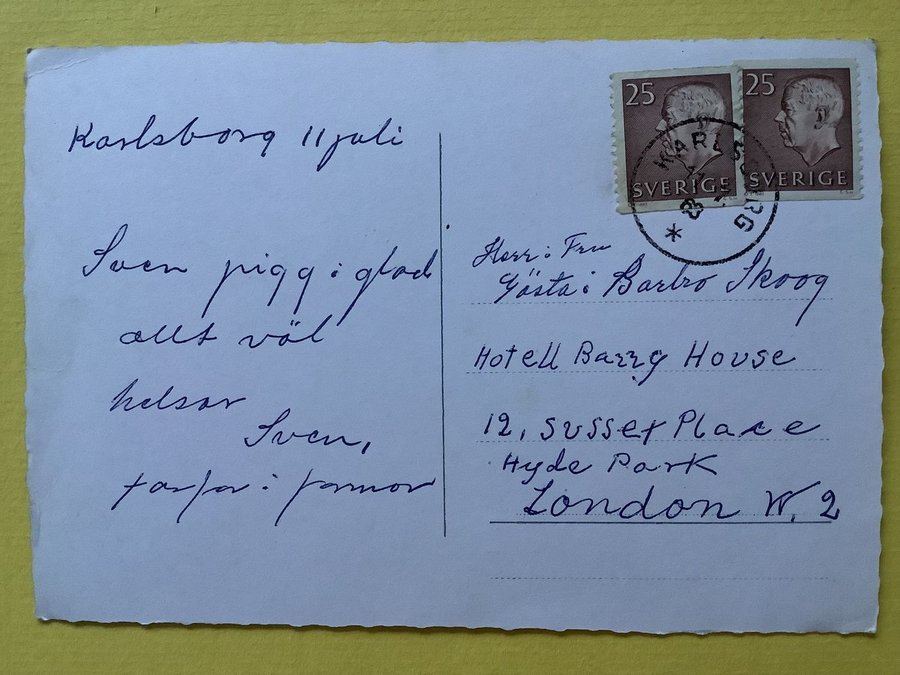 Karlsborg 11 juli
Sven pigg i glad
allt väl
helsar
Sven,
farfar i farmor
25 SVERIGE
25 SVERIGE
KARLSBORG
Herr i Fru
Gösta i Barbro Skoog
Hotell Barry House
12, Sussex Place
Hyde Park
London W. 2